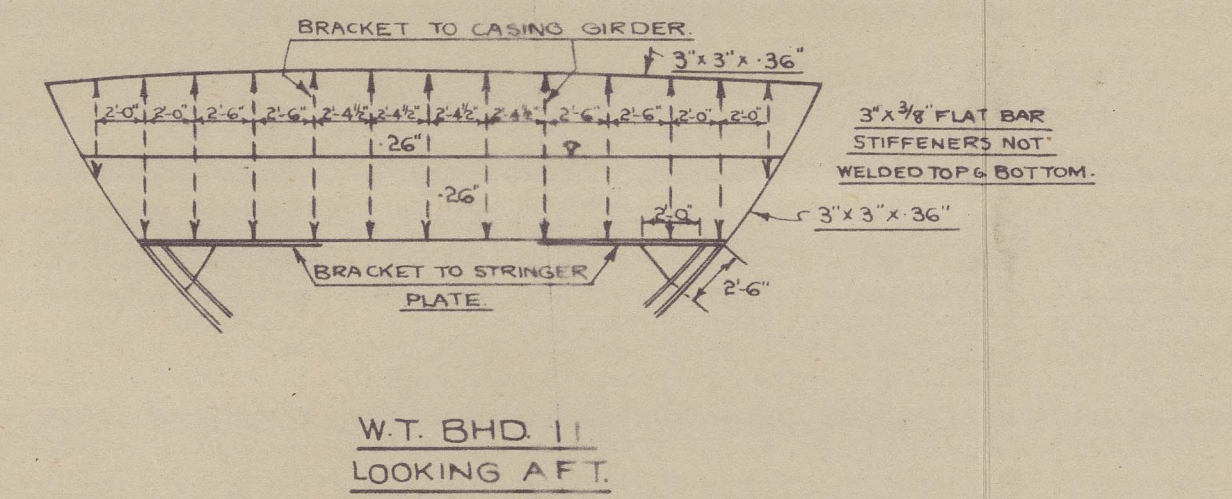 BRACKET TO CASING GIRDER.
3"x 3"x ·36"
2'-0" 2'-0" 2'-6" 2'-6" 2'-4½" 2'-4½" 2'-4½" 2'-4½" 2'-6" 2'-6" 2'-0" 2'-0"
3"x 3/8" FLAT BAR
STIFFENERS NOT
WELDED TOP & BOTTOM.
·26"
·26"
2'-0"
3"x 3"x ·36"
BRACKET TO STRINGER
PLATE.
2'-6"
W.T. BHD. 11
LOOKING AFT.